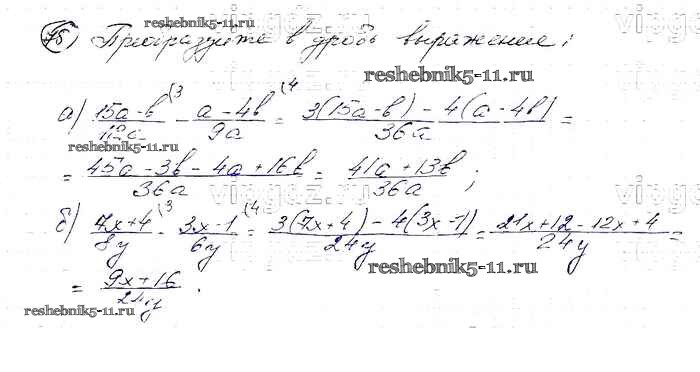 reshebnik5-11.ru
75) Преобразуйте в дробь выражение:
reshebnik5-11.ru
а) (15a-b)/(12a) (3 - (a-4b)/(9a) (4 = (3(15a-b)-4(a-4b))/(36a) =
reshebnik5-11.ru
= (45a-3b-4a+16b)/(36a) = (41a+13b)/(36a) ;
б) (7x+4)/(8y) (3 - (3x-1)/(6y) (4 = (3(7x+4)-4(3x-1))/(24y) = (21x+12-12x+4)/(24y) =
reshebnik5-11.ru
= (9x+16)/(24y) .
reshebnik5-11.ru